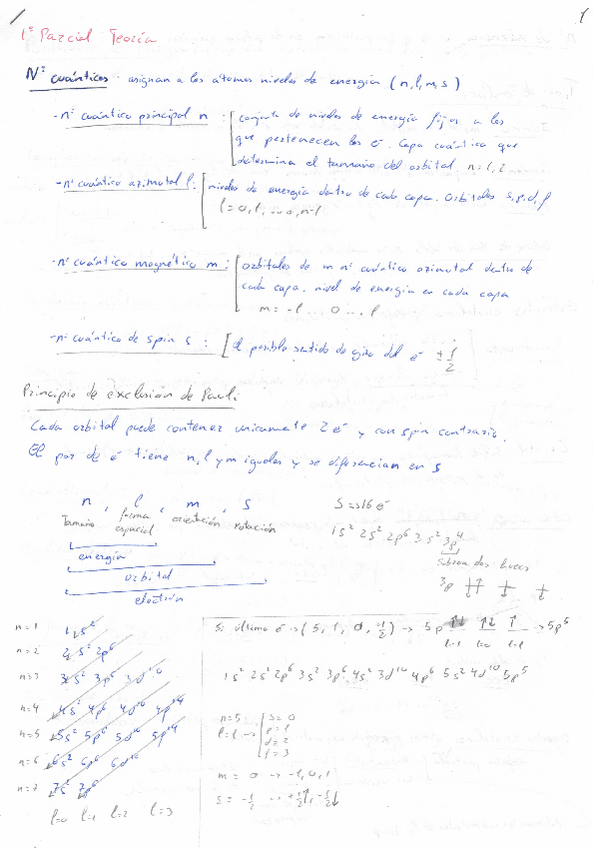 1º Parcial Teoría
1
Nº cuánticos: asignan a los átomos niveles de energía (n, l, m, s)
- nº cuántico principal n : conjunto de niveles de energía fijos a los
que pertenecen los e⁻. Capa cuántica que
determina el tamaño del orbital. n=1,2
- nº cuántico azimutal l : niveles de energía dentro de cada capa. Orbitales s, p, d, f
l=0,1, ... n-1
- nº cuántico magnético m : orbitales de m nº cuántico azimutal dentro de
cada capa. nivel de energía en cada capa
m = -l ... 0 ... l
- nº cuántico de spin s : El posible sentido de giro del e⁻ ± 1/2
Principio de exclusión de Pauli
Cada orbital puede contener unicamente 2 e⁻ y con spin contrario.
El par de e⁻ tiene n, l y m iguales y se diferencian en s
n , l , m , s
Tamaño forma espacial orientación rotación
energía
orbital
electrón
S => 16 e⁻
1s² 2s² 2p⁶ 3s² 3p⁴
dos
3p
n=1 1s²
n=2 2s² 2p⁶
n=3 3s² 3p⁶ 3d¹⁰
n=4 4s² 4p⁶ 4d¹⁰ 4f¹⁴
n=5 5s² 5p⁶ 5d¹⁰ 5f¹⁴
n=6 6s² 6p⁶ 6d¹⁰
n=7 7s² 7p⁶
l=0 l=1 l=2 l=3
Si último e⁻ → (5, 1, 0, -1/2) → 5p ↑↓ ↑↓ ↑ → 5p⁵
1s² 2s² 2p⁶ 3s² 3p⁶ 4s² 3d¹⁰ 4p⁶ 5s² 4d¹⁰ 5p⁵
n=5
l=1 → s=0
p=1
d=2
f=3
m = 0 → -1, 0, 1
s = -1/2 → +1/2 ↑, -1/2 ↓